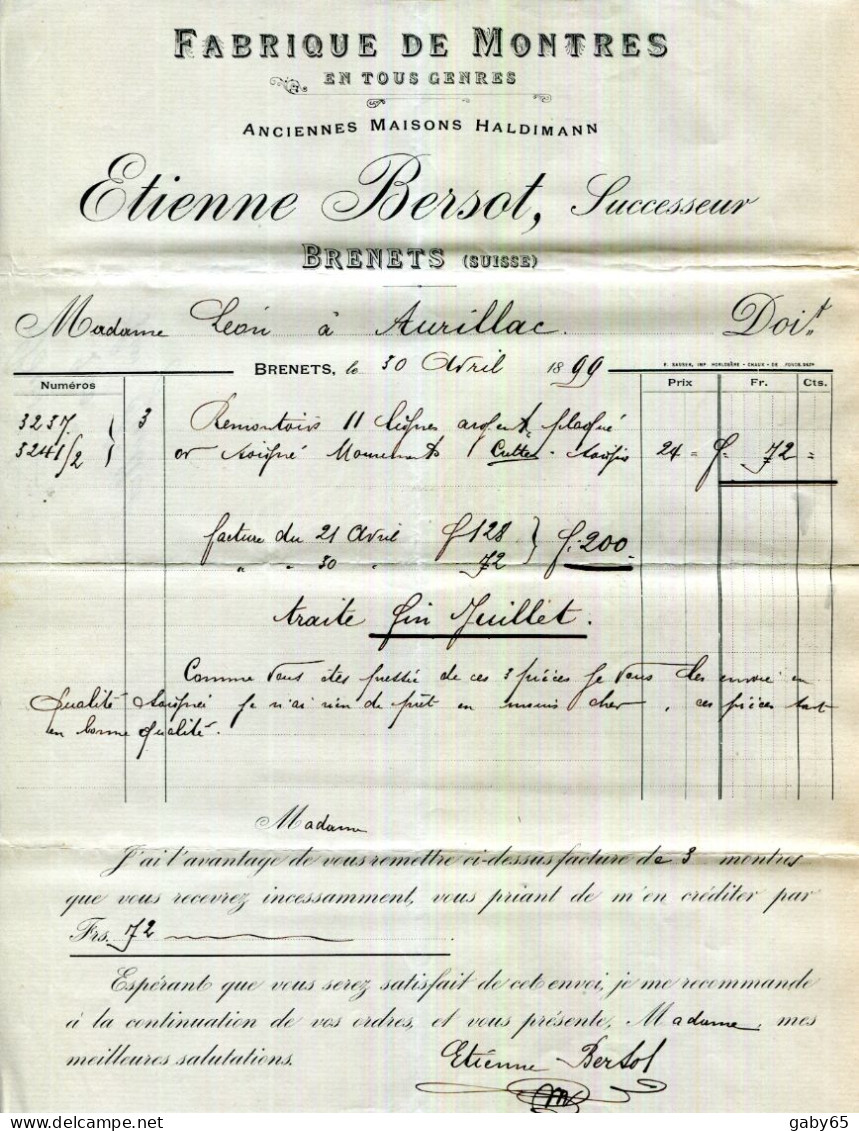 FABRIQUE DE MONTRES
EN TOUS GENRES
ANCIENNES MAISONS HALDIMANN
Etienne Bersot, Successeur
BRENETS (SUISSE)
Madame Léon à Aurillac. Doit
BRENETS, le 30 Avril 1899
Numéros Prix Fr. Cts.
3237 3 Remontoirs 11 lignes argent plaqué
3241/2 or soigné Mouvements 24 = f. 72 =
facture du 21 Avril f 128 } f. 200
" " 30 " 72
traite fin Juillet.
Comme vous êtes pressée de ces 3 pièces je vous les envoie en
qualité soignée je n'ai rien de prêt en moins cher, ces pièces sont
en bonne qualité.
Madame
J'ai l'avantage de vous remettre ci-dessus facture de 3 montres
que vous recevrez incessamment, vous priant de m'en créditer par
Frs. 72
Espérant que vous serez satisfait de cet envoi, je me recommande
à la continuation de vos ordres, et vous présente, Madame, mes
meilleures salutations.
Etienne Bersot
gaby65